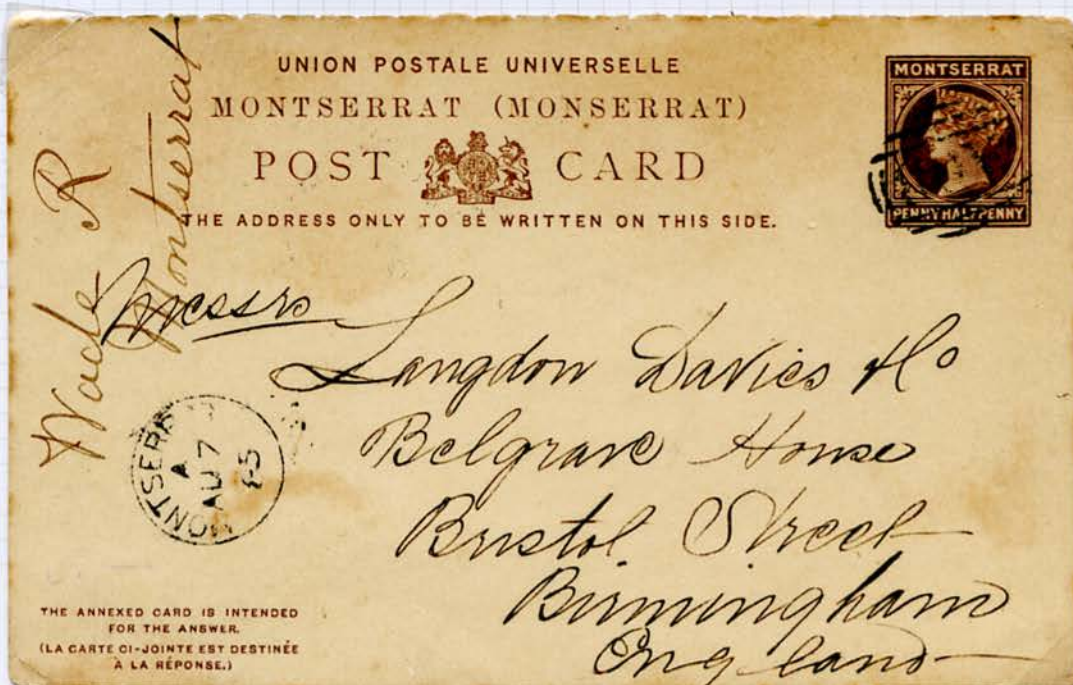 UNION POSTALE UNIVERSELLE
MONTSERRAT (MONSERRAT)
POST CARD
THE ADDRESS ONLY TO BE WRITTEN ON THIS SIDE.
MONTSERRAT
PENNY HALFPENNY
Wade R
Montserrat
Messrs
Langdon Davies & Co
Belgrave House
Bristol Street
Birmingham
England
MONTSERRAT
A
AU 7
THE ANNEXED CARD IS INTENDED
FOR THE ANSWER.
(LA CARTE CI-JOINTE EST DESTINÉE
À LA RÉPONSE.)